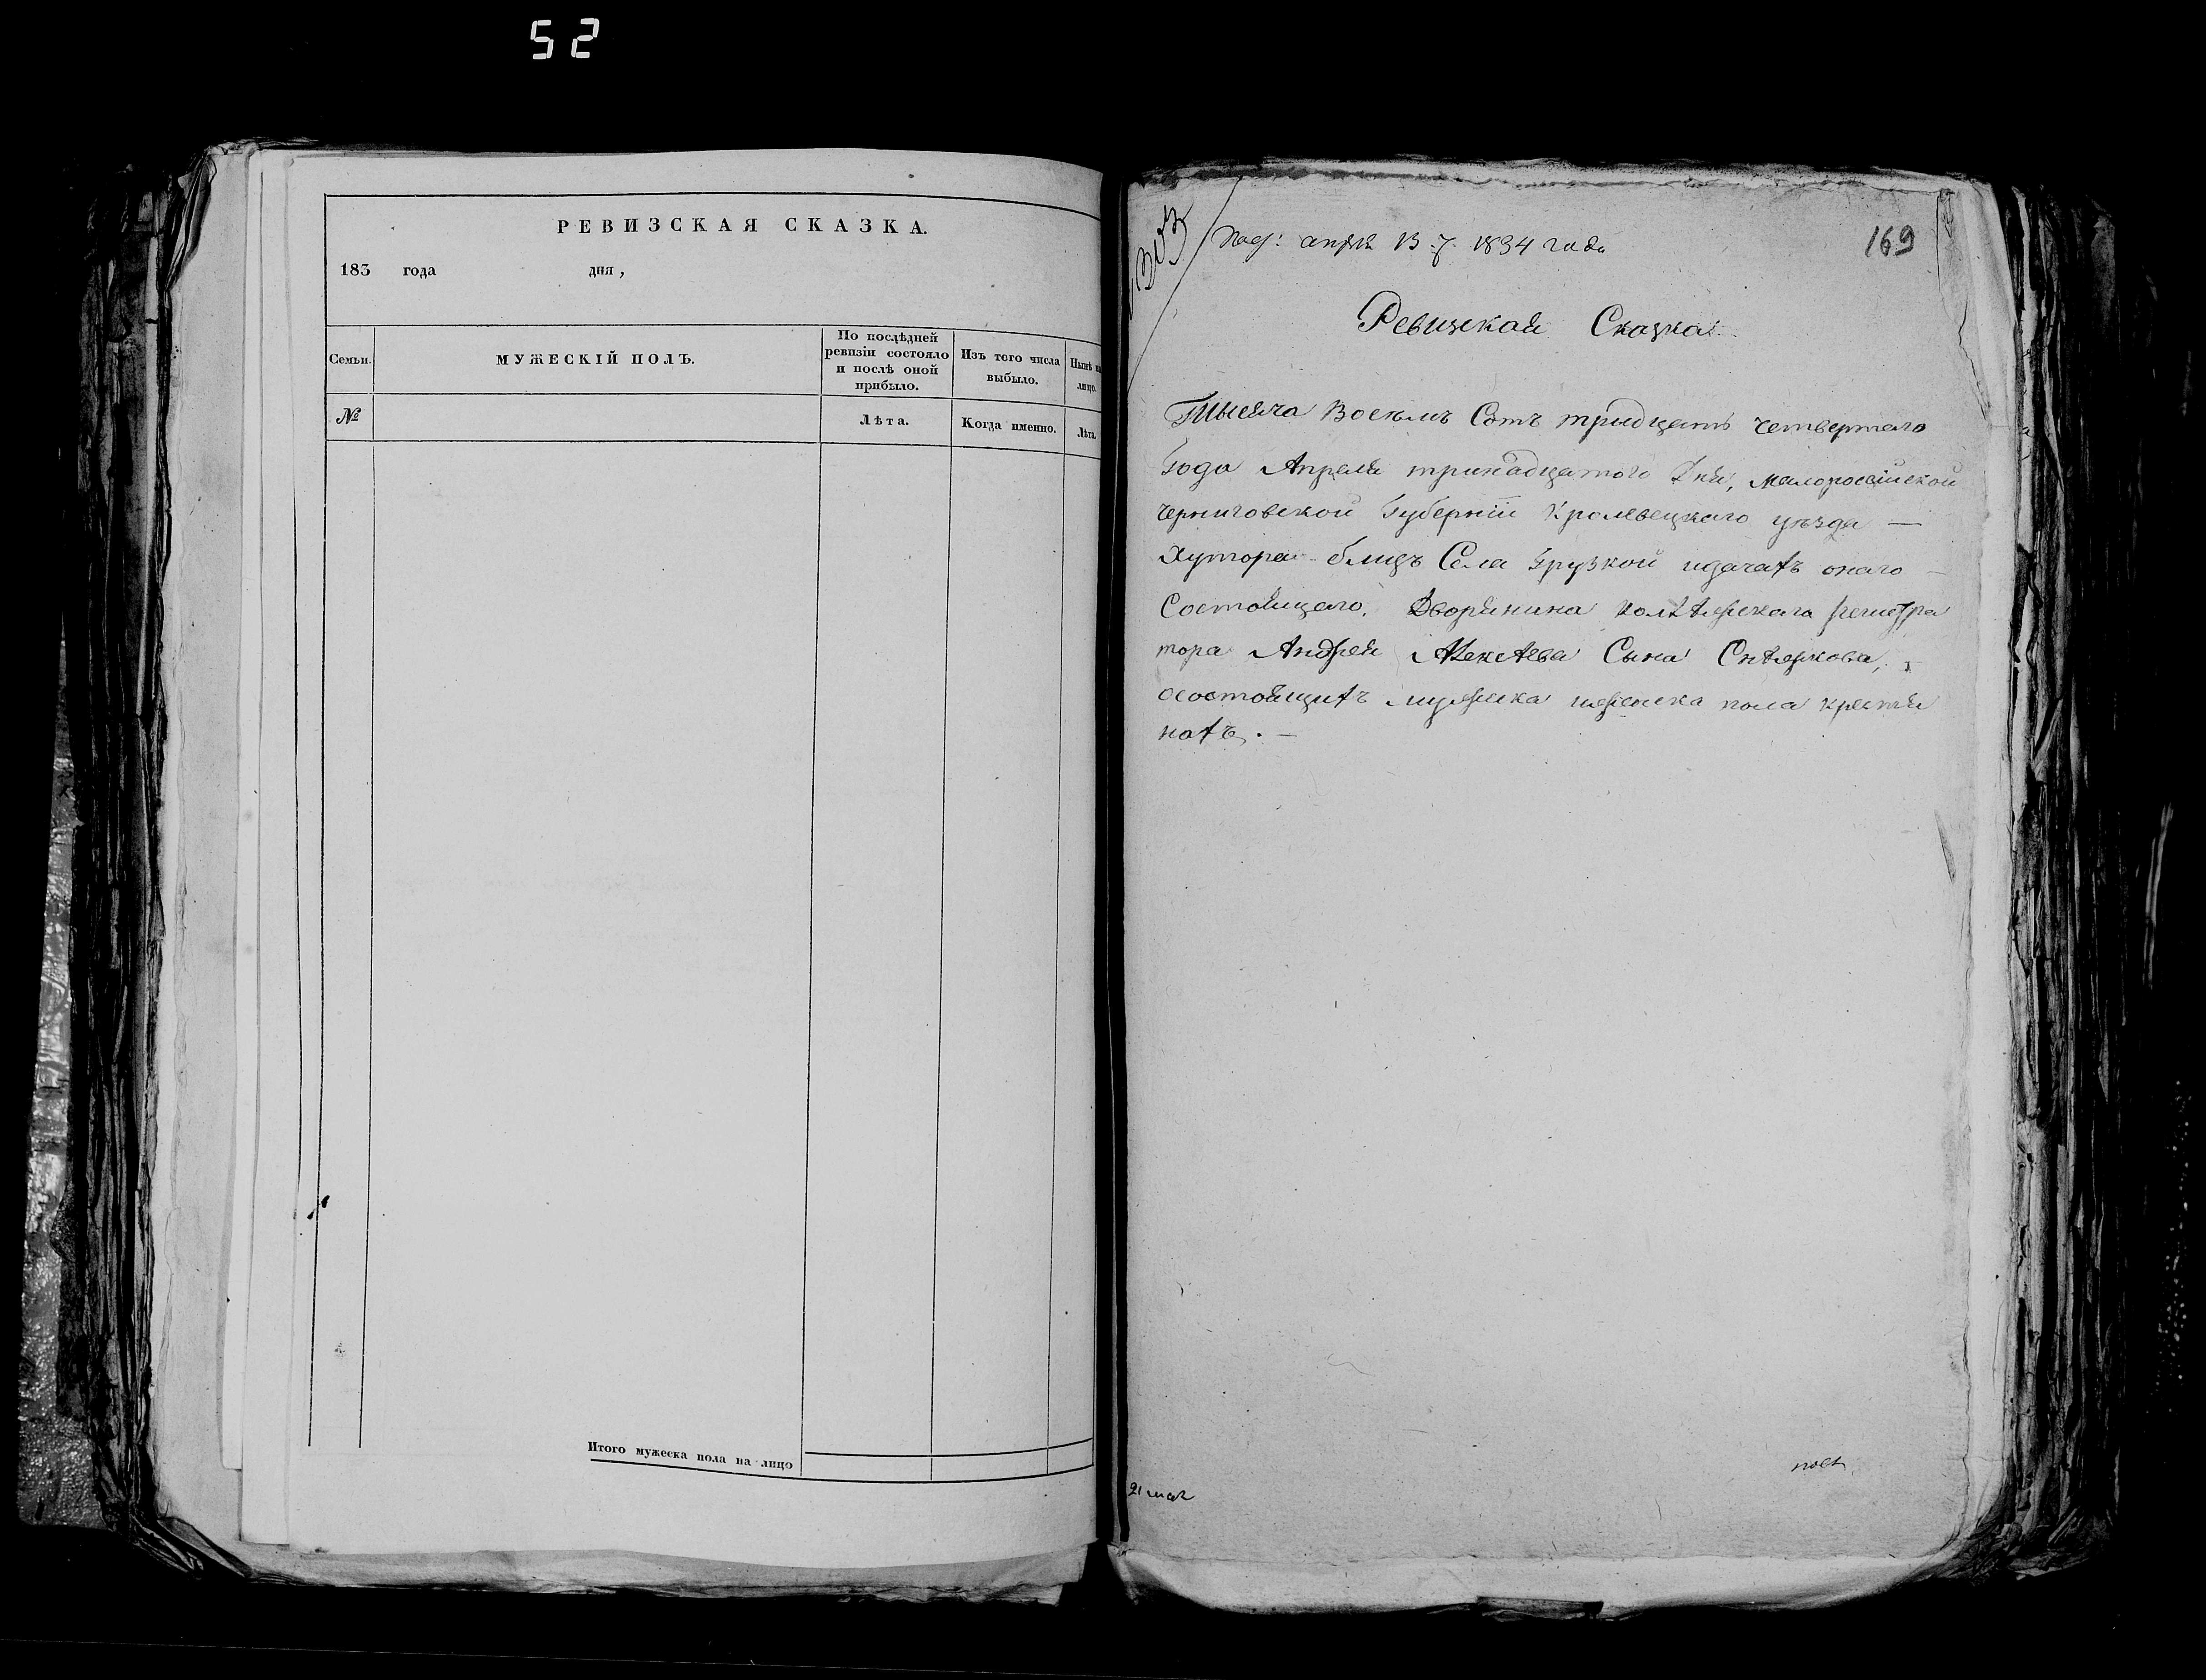 52
РЕВИЗСКАЯ СКАЗКА.
183 года дня,
Семьи.
МУЖЕСКІЙ ПОЛЪ.
По послѣдней ревизіи состояло и послѣ оной прибыло.
Изъ того числа выбыло.
Нынѣ на лицо.
№
Лѣта.
Когда именно.
Лѣта.
Итого мужеска пола на лицо
169
апрѣл 13 1834 года
Ревизская Сказка
Тысяча Восемь Сотъ тридцать четвертаго
Года Апреля тринадцатого Дня, малоросійской
черниговской Губерніи Кролевецкаго уѣзда —
Хутора близъ Села Грузкой идачахъ онаго —
Состоящаго. Дворянина колѣжскаго регистра
тора Андрея Алексѣева Сына Снѣжкова,
осостоящихъ мужеска иженска пола крестя
нахъ. —
21 мая